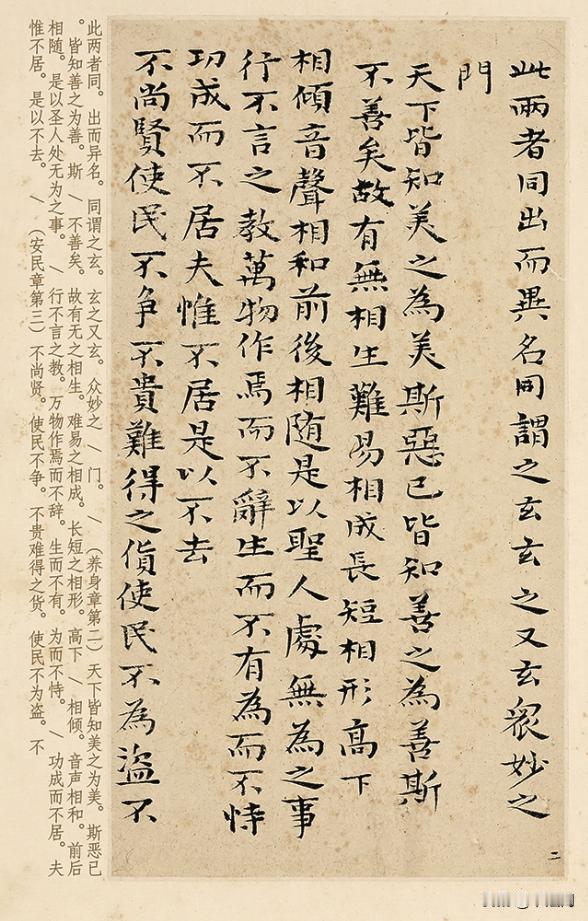 此兩者同出而異名同謂之玄玄之又玄衆妙之
門
天下皆知美之為美斯惡已皆知善之為善斯
不善矣故有無相生難易相成長短相形高下
相傾音聲相和前後相随是以聖人處無為之事
行不言之教萬物作焉而不辭生而不有為而不恃
功成而不居夫惟不居是以不去
不尚賢使民不争不貴難得之貨使民不為盜不
二
此两者同。出而异名。同谓之玄。玄之又玄。众妙之/门。/(养身章第二)天下皆知美之为美。斯恶已
皆知善之为善。斯/不善矣。故有无之相生。难易之相成。长短之相形。高下/相倾。音声相和。前后
相随。是以圣人处无为之事。/行不言之教。万物作焉而不辞。生而不有。为而不恃。/功成而不居。夫
惟不居。是以不去。/(安民章第三)不尚贤。使民不争。不贵难得之货。使民不为盗。不